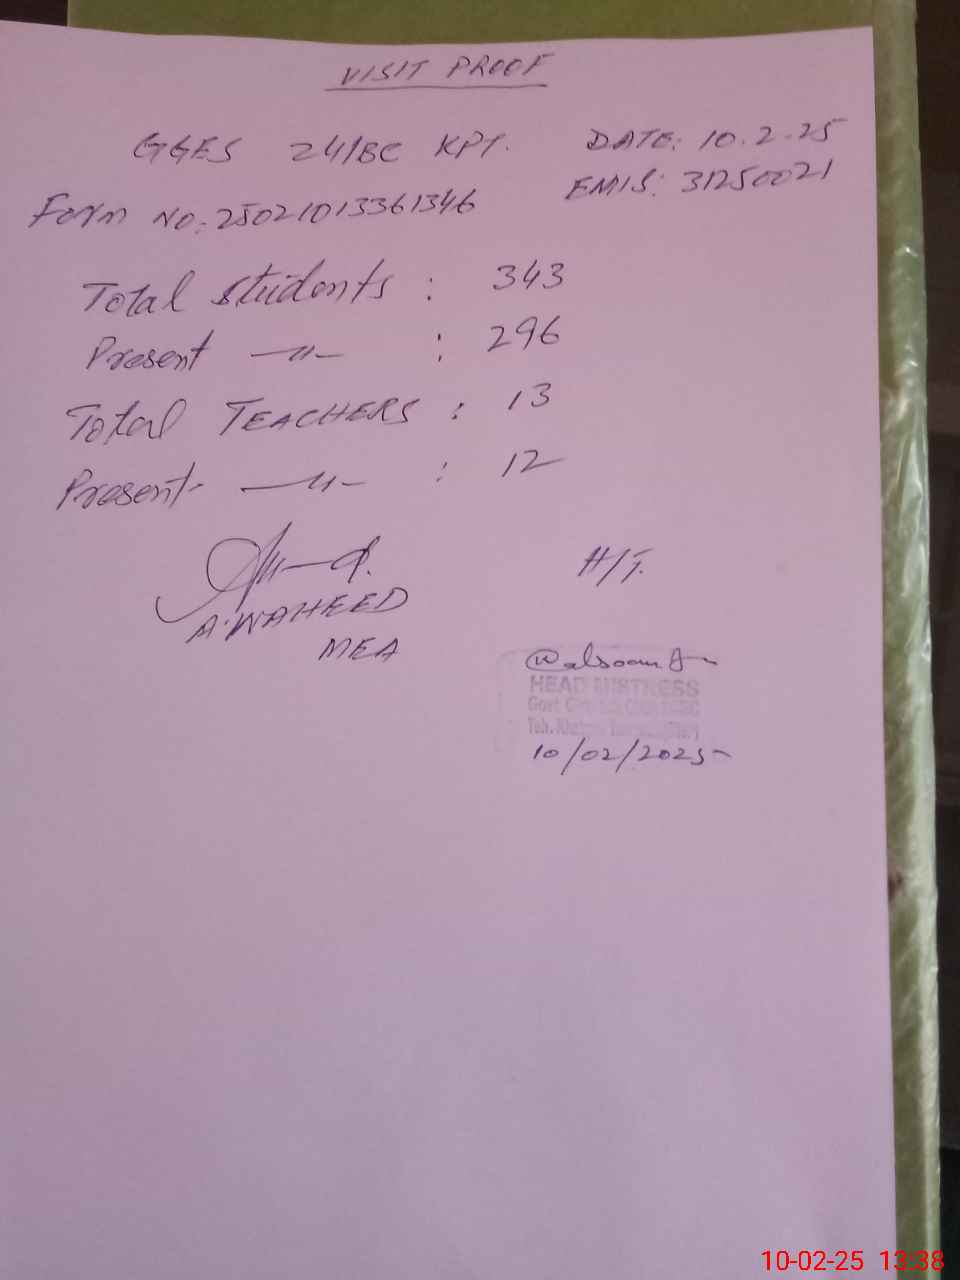 VISIT PROOF
GGES 24/BC KPT. DATE: 10.2.25
Form NO: 25021013361346 EMIS: 31250021
Total Students : 343
Present —〃— : 296
Total TEACHERS : 13
Present —〃— : 12
H/T.
A. WAHEED
MEA
HEAD MISTRESS
Govt
Teh.
10/02/2025
10-02-25 13:38